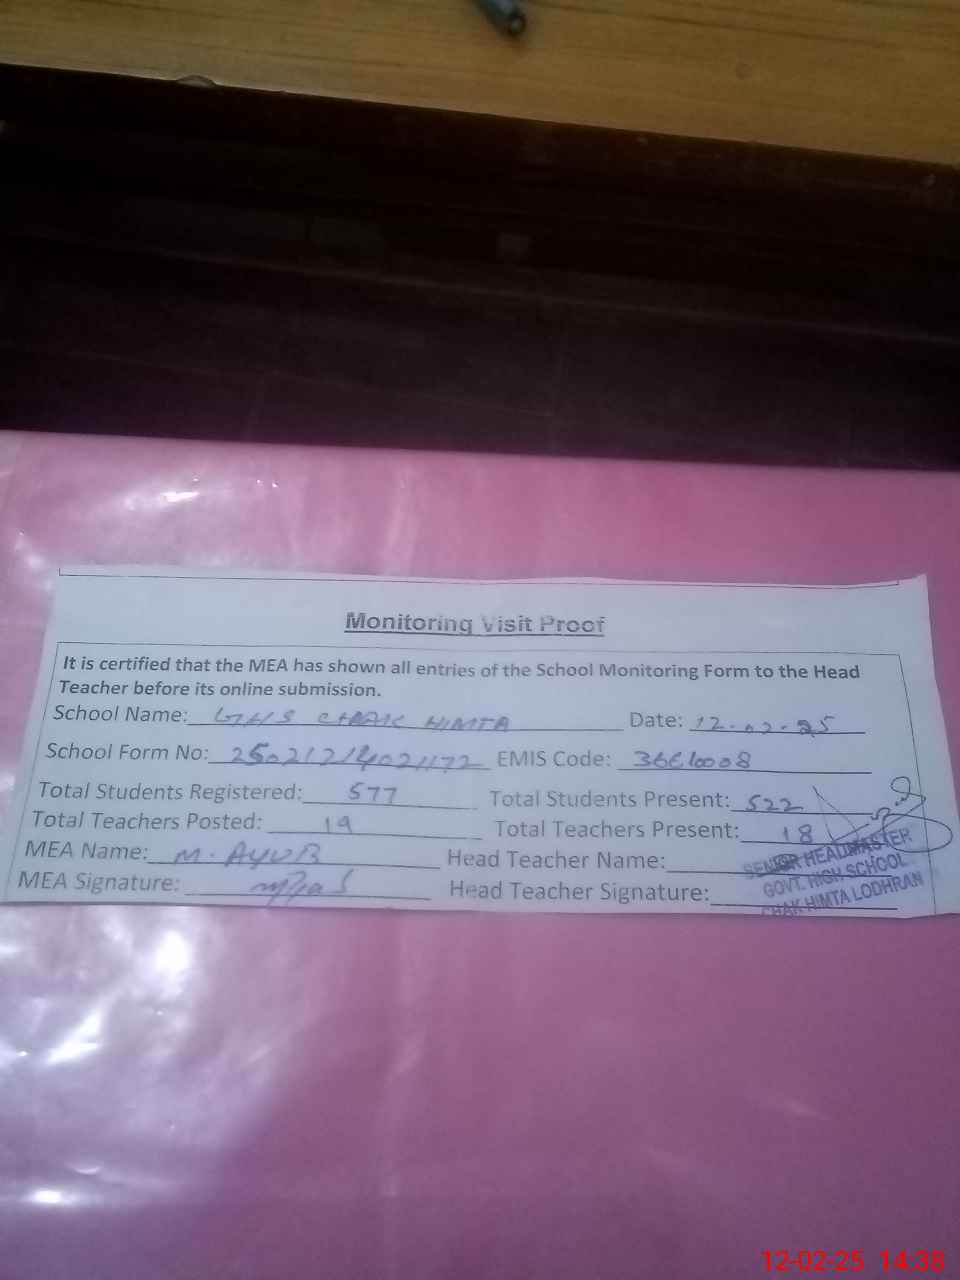 Monitoring Visit Proof
It is certified that the MEA has shown all entries of the School Monitoring Form to the Head
Teacher before its online submission.
School Name: GHS CHAK HIMTA Date: 12-02-25
School Form No: EMIS Code: 36610008
Total Students Registered: 577 Total Students Present: 522
Total Teachers Posted: 19 Total Teachers Present: 18
MEA Name: M. AYUB Head Teacher Name:
MEA Signature: Head Teacher Signature:
SENIOR HEADMASTER
GOVT. HIGH SCHOOL
CHAK HIMTA LODHRAN
12-02-25 14:38